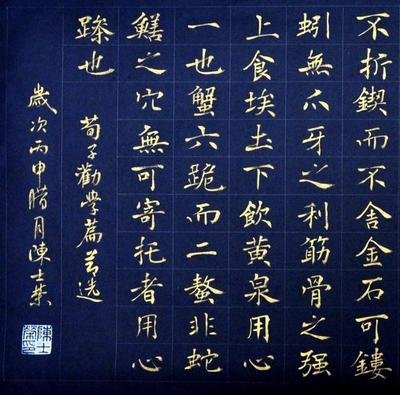 不折鍥而不舍金石可鏤
蚓無爪牙之利筋骨之强
上食埃土下飲黄泉用心
一也蟹六跪而二螯非蛇
鱔之穴無可寄托者用心
躁也
荀子勸學篇節選
歲次丙申腊月陳士榮
陳士榮印